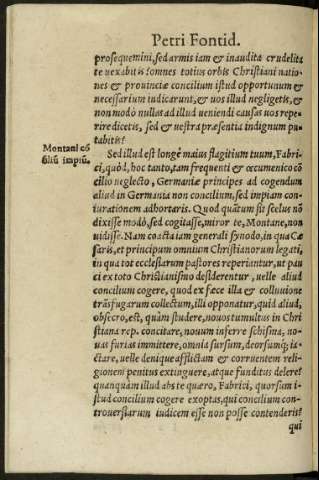 Petri Fontid.
prosequemini, sed armis iam & inaudita crudelita
te uexabitis? omnes totius orbis Christiani natio-
nes & prouinciæ concilium istud opportunum &
necessarium iudicarunt, & uos illud negligetis, &
non modò nullas ad illud ueniendi causas uos repe-
rire dicetis, sed & uestra præsentia indignum pu-
tabitis?
Montani cō
siliū impiū.
Sed illud est longè maius flagitium tuum, Fabri-
ci, quòd, hoc tanto, tam frequenti & œcumenico cō
cilio neglecto, Germaniæ principes ad cogendum
aliud in Germania non concilium, sed impiam con-
iurationem adhortaris. Quod quātum sit scelus nō
dixisse modò, sed cogitasse, miror te, Montane, non
uidisse. Nam coacta iam generali synodo, in qua Cæ
saris, et principum omnium Christianorum legati,
in qua tot ecclesiarum pastores reperiantur, ut pau
ci ex toto Christianismo desiderentur, uelle aliud
concilium cogere, quod ex fæce illa & colluuione
trāsfugarum collectum, illi opponatur, quid aliud,
obsecro, est, quàm studere, nouos tumultus in Chri
stiana rep. concitare, nouum inferre schisma, no-
uas furias immittere, omnia sursum, deorsumq́; ia-
ctare, uelle denique afflictam & corruentem reli-
gionem penitus extinguere, atque funditus delere?
quanquàm illud abs te quæro, Fabrici, quorsum i-
stud concilium cogere exoptas, qui concilium con-
trouersiarum iudicem esse non posse contenderis?
qui